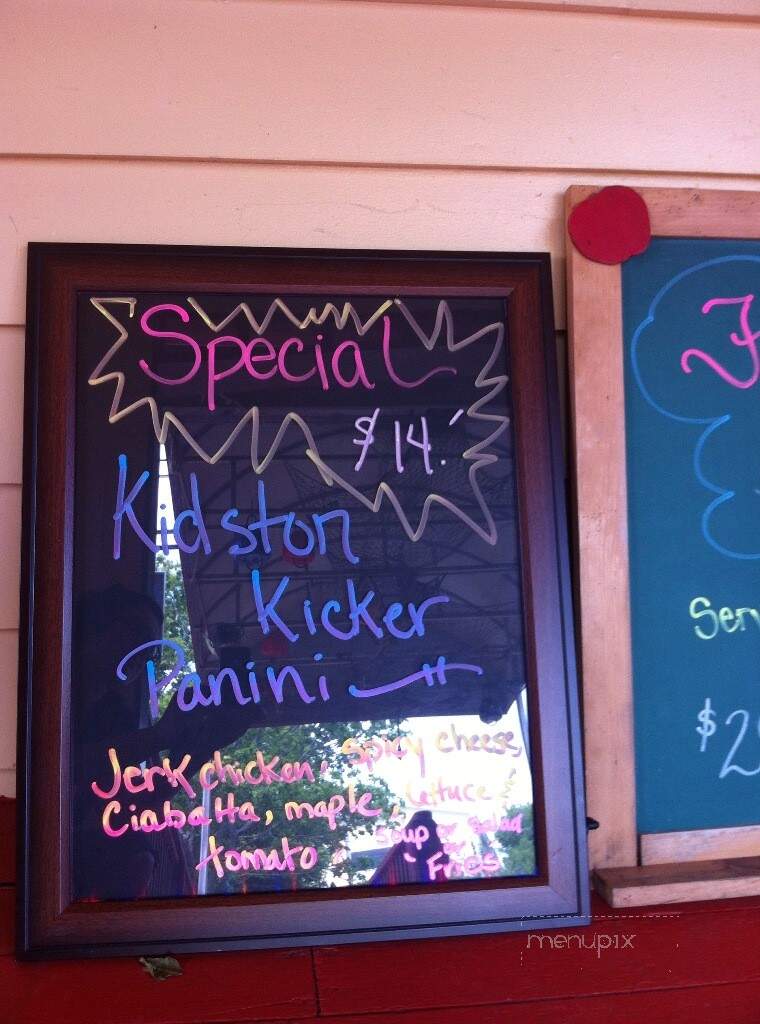 Special
$14.
Kidston
Kicker
Panini
Jerk chicken, spicy cheese,
Ciabatta, maple, lettuce &
tomato
soup or salad
or
Fries
menupix